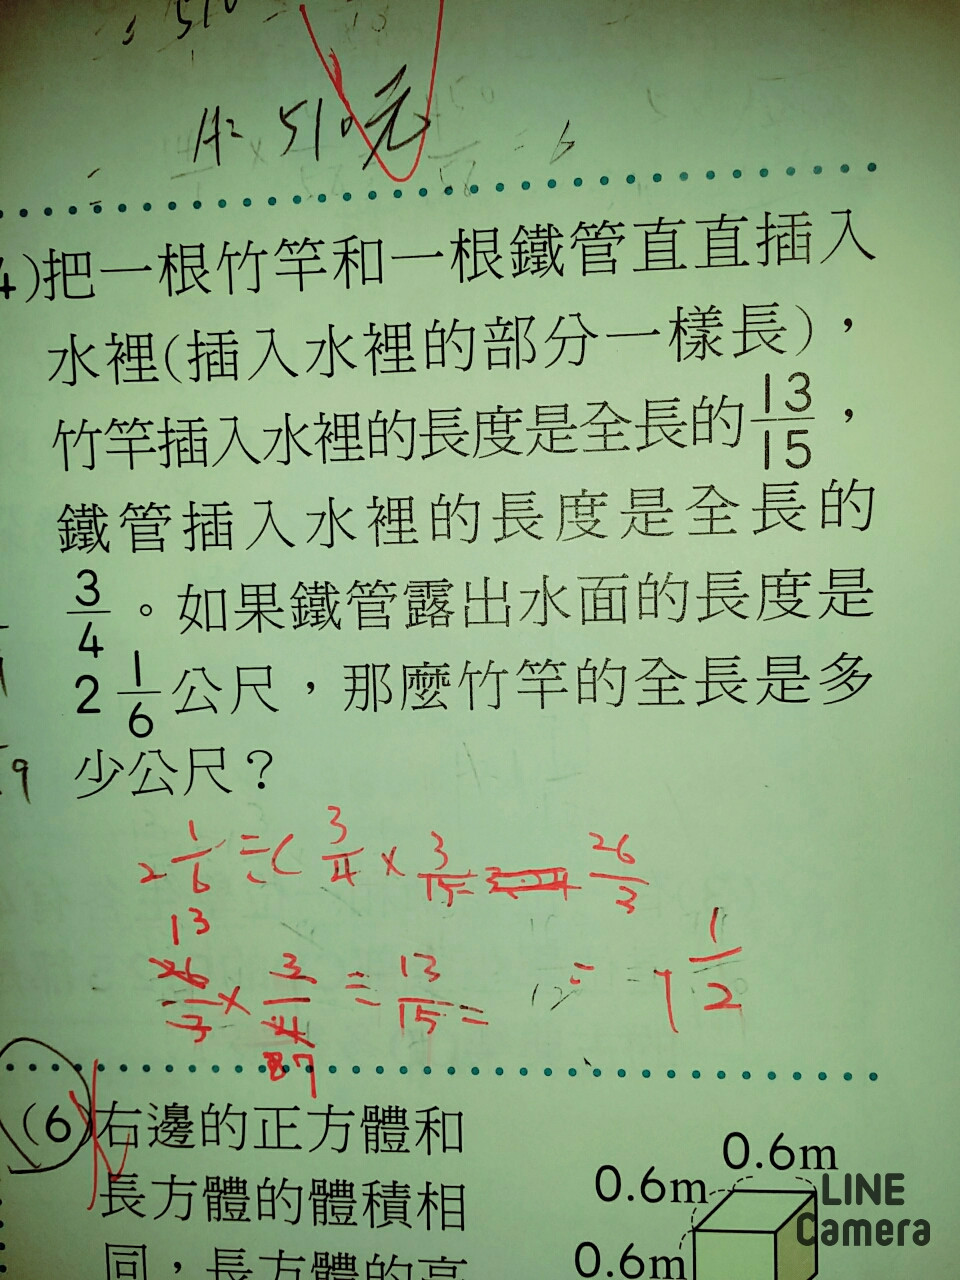 510
A= 510元
4)把一根竹竿和一根鐵管直直插入
水裡(插入水裡的部分一樣長)，
竹竿插入水裡的長度是全長的13/15，
鐵管插入水裡的長度是全長的
3/4。如果鐵管露出水面的長度是
2 1/6公尺，那麼竹竿的全長是多
少公尺？
9
2 1/6 ÷( 3/4 × 3/15 = 26/3
13
26/3 × 3/4 = 13/15 = = 7 1/2
(6)右邊的正方體和
長方體的體積相
同，長方體的高
0.6m
0.6m
0.6m
LINE
Camera